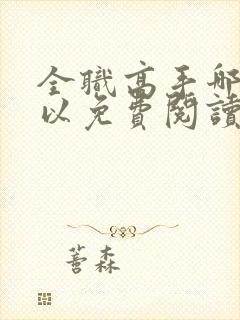 全職高手哪
以免費閱讀
蓍森